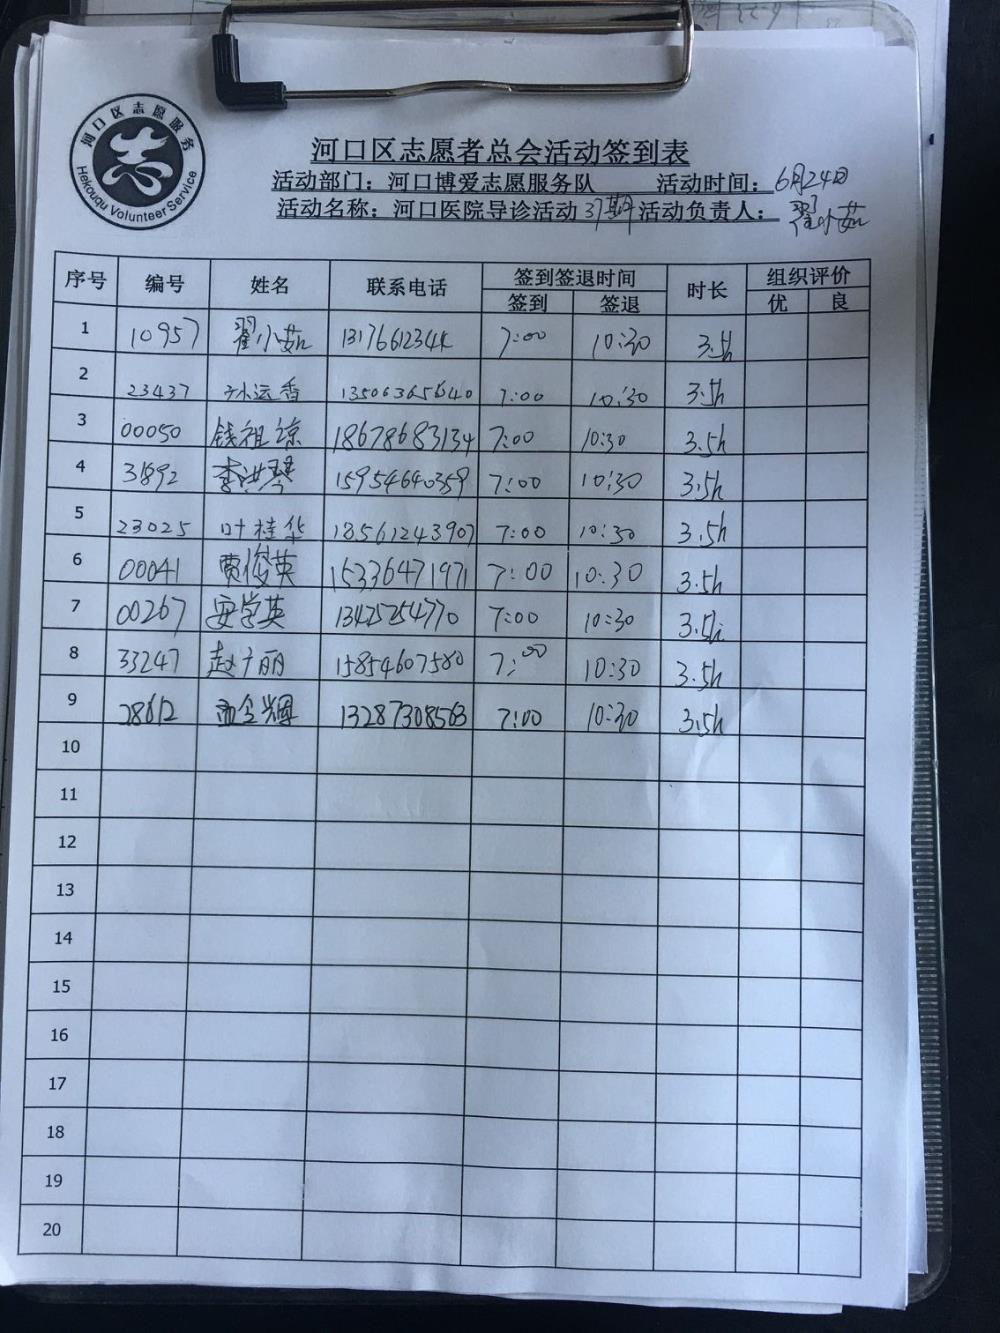 河口区志愿服务
Hekouqu Volunteer Service
河口区志愿者总会活动签到表
活动部门：河口博爱志愿服务队 活动时间：6月24日
活动名称：河口医院导诊活动37期 活动负责人：翟小茹
序号 编号 姓名 联系电话 签到签退时间 时长 组织评价
签到 签退 优 良
1 10957 翟小茹 13176612344 7:00 10:30 3.5h
2 23437 孙运香 13506365640 7:00 10:30 3.5h
3 00050 钱祖琼 18678683134 7:00 10:30 3.5h
4 31892 李洪琴 15954640359 7:00 10:30 3.5h
5 23025 叶桂华 18561243907 7:00 10:30 3.5h
6 00041 贾俊英 15336471971 7:00 10:30 3.5h
7 00267 安学英 13425254770 7:00 10:30 3.5h
8 33247 赵广丽 15854607580 7:00 10:30 3.5h
9 28612 13287308563 7:00 10:30 3.5h
10
11
12
13
14
15
16
17
18
19
20